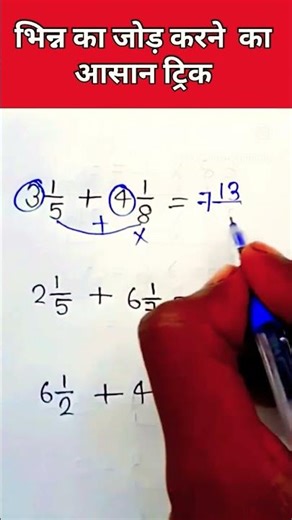 भिन्न का जोड़ करने का
आसान ट्रिक
3 1/5 + 4 1/8 = 7 13
+
×
2 1/5 + 6 1/
6 1/2 + 4